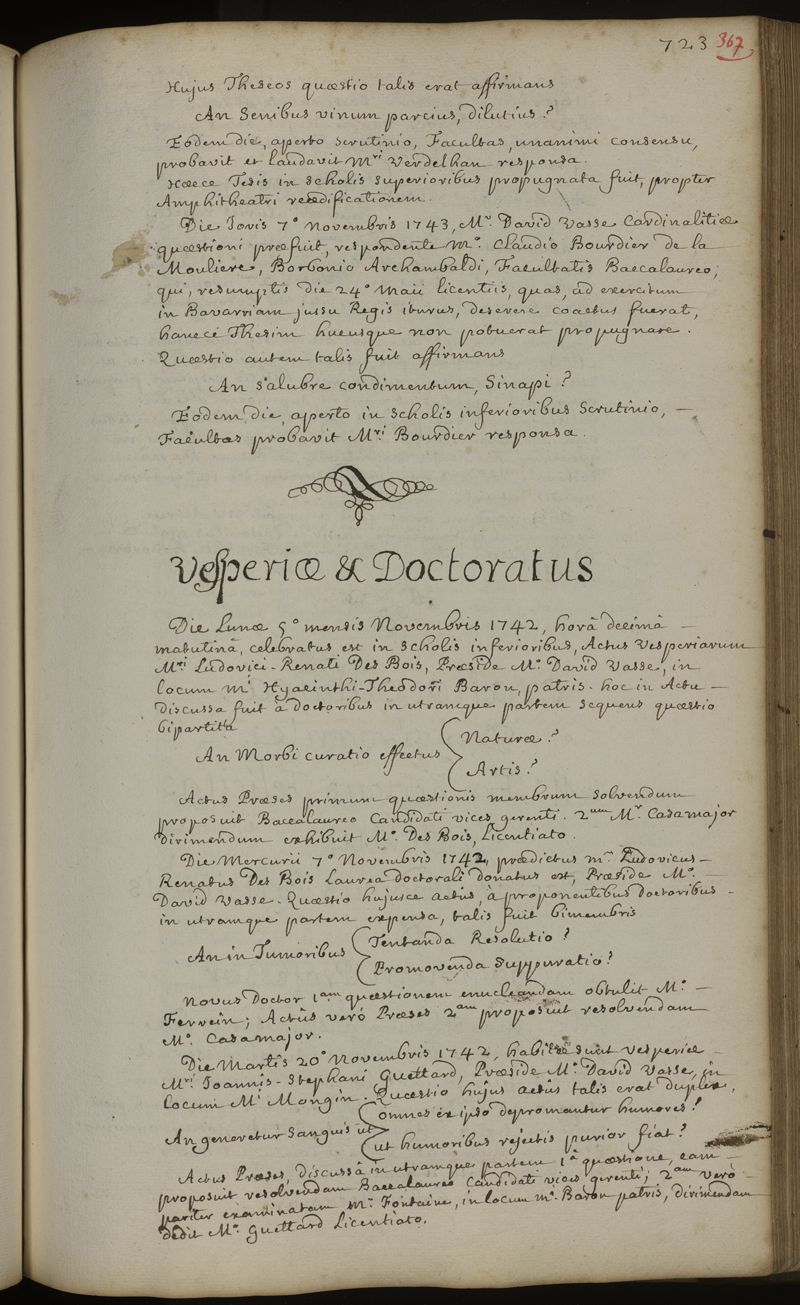 723 367
Hujus Theseos quæstio talis erat affirmans
An Senibus vinum parcius, dilutius ?
Eodem die, aperto scrutinio, Facultas, unanimi consensu,
probavit et laudavit Mri Verdelhan responsa.
Hæce Tesis in scholis superioribus propugnata fuit, propter
Amphitheatri reædificationem.
Die Jovis 7° Novembris 1743, Mr. David Vasse Cardinalitiæ
quæstioni præfuit, respondente M°. Claudio Bourdier de la
Mouliere, Borbonio Archambaldi, Facultatis Baccalaureo,
qui, resumptis die 24° Maii licentiis, quas, ad exercitum
in Bavarriam jussu Regis iturus, deserere coactus fuerat,
hancce Thesim hucusque non potuerat propugnare.
Quæstio autem talis fuit affirmans
An salubre condimentum, Sinapi ?
Eodem die, aperto in scholis inferioribus Scrutinio, —
Facultas probavit Mri Bourdier responsa.
Vesperiæ & Doctoratus
Die Lunæ 5° mensis Novembris 1742, horâ decimâ —
matutinâ, celebratus est in scholis inferioribus, Actus Vesperiarum
Mri Ludovici-Renati Des Bois, Præside M°. David Vasse, in
locum Mi Hyacinthi-Theodori Baron, patris. hoc in Actu —
discussa fuit à doctoribus in utramque partem sequens quæstio
bipartita
An Morbi curatio effectus { Naturæ ?
Artis ?
Actus Præses primum quæstionis membrum solvendum
proposuit Baccalaureo Candidati vices gerenti. 2um Mr. Casamajor
dirimendum exhibuit M°. Des Bois, Licentiato.
Die Mercurii 7° Novembris 1742, prædictus mr. Ludovicus —
Renatus Des Bois Laurea doctorali donatus est, Præside M°. —
David Vasse. Quæstio hujusce actûs, à proponentibus doctoribus -
in utramque partem expensa, talis fuit bimembris
An in Tumoribus { Tentanda Resolutio ?
Promovenda Suppuratio ?
Novus Doctor 1am quæstionem enucleandam obtulit M°. —
Ferrein; Actûs verò Præses 2am proposuit resolvendam
M°. Casamajor.
Die Martis 20° Novembris 1742, habitæ sunt vesperiæ —
Mri Joannis-Stephani Guettard, Præside M°. David Vasse, in
locum Mi Mongin. Quæstio hujus actûs talis erat duplex,
An generetur Sanguis ut { omnes ex ipso depromantur humores ?
ut humoribus rejectis purior fiat ?
Actus Præses, discussâ in utramque partem 1â quæstione, eam —
proposuit resolvendam Baccalaureo Candidati vices gerenti; 2am verò
pariter examinatam Mr. Fontaine, in locum Mi. Baron patris, dirimendam
dedit M°. Guettard Licentiato.